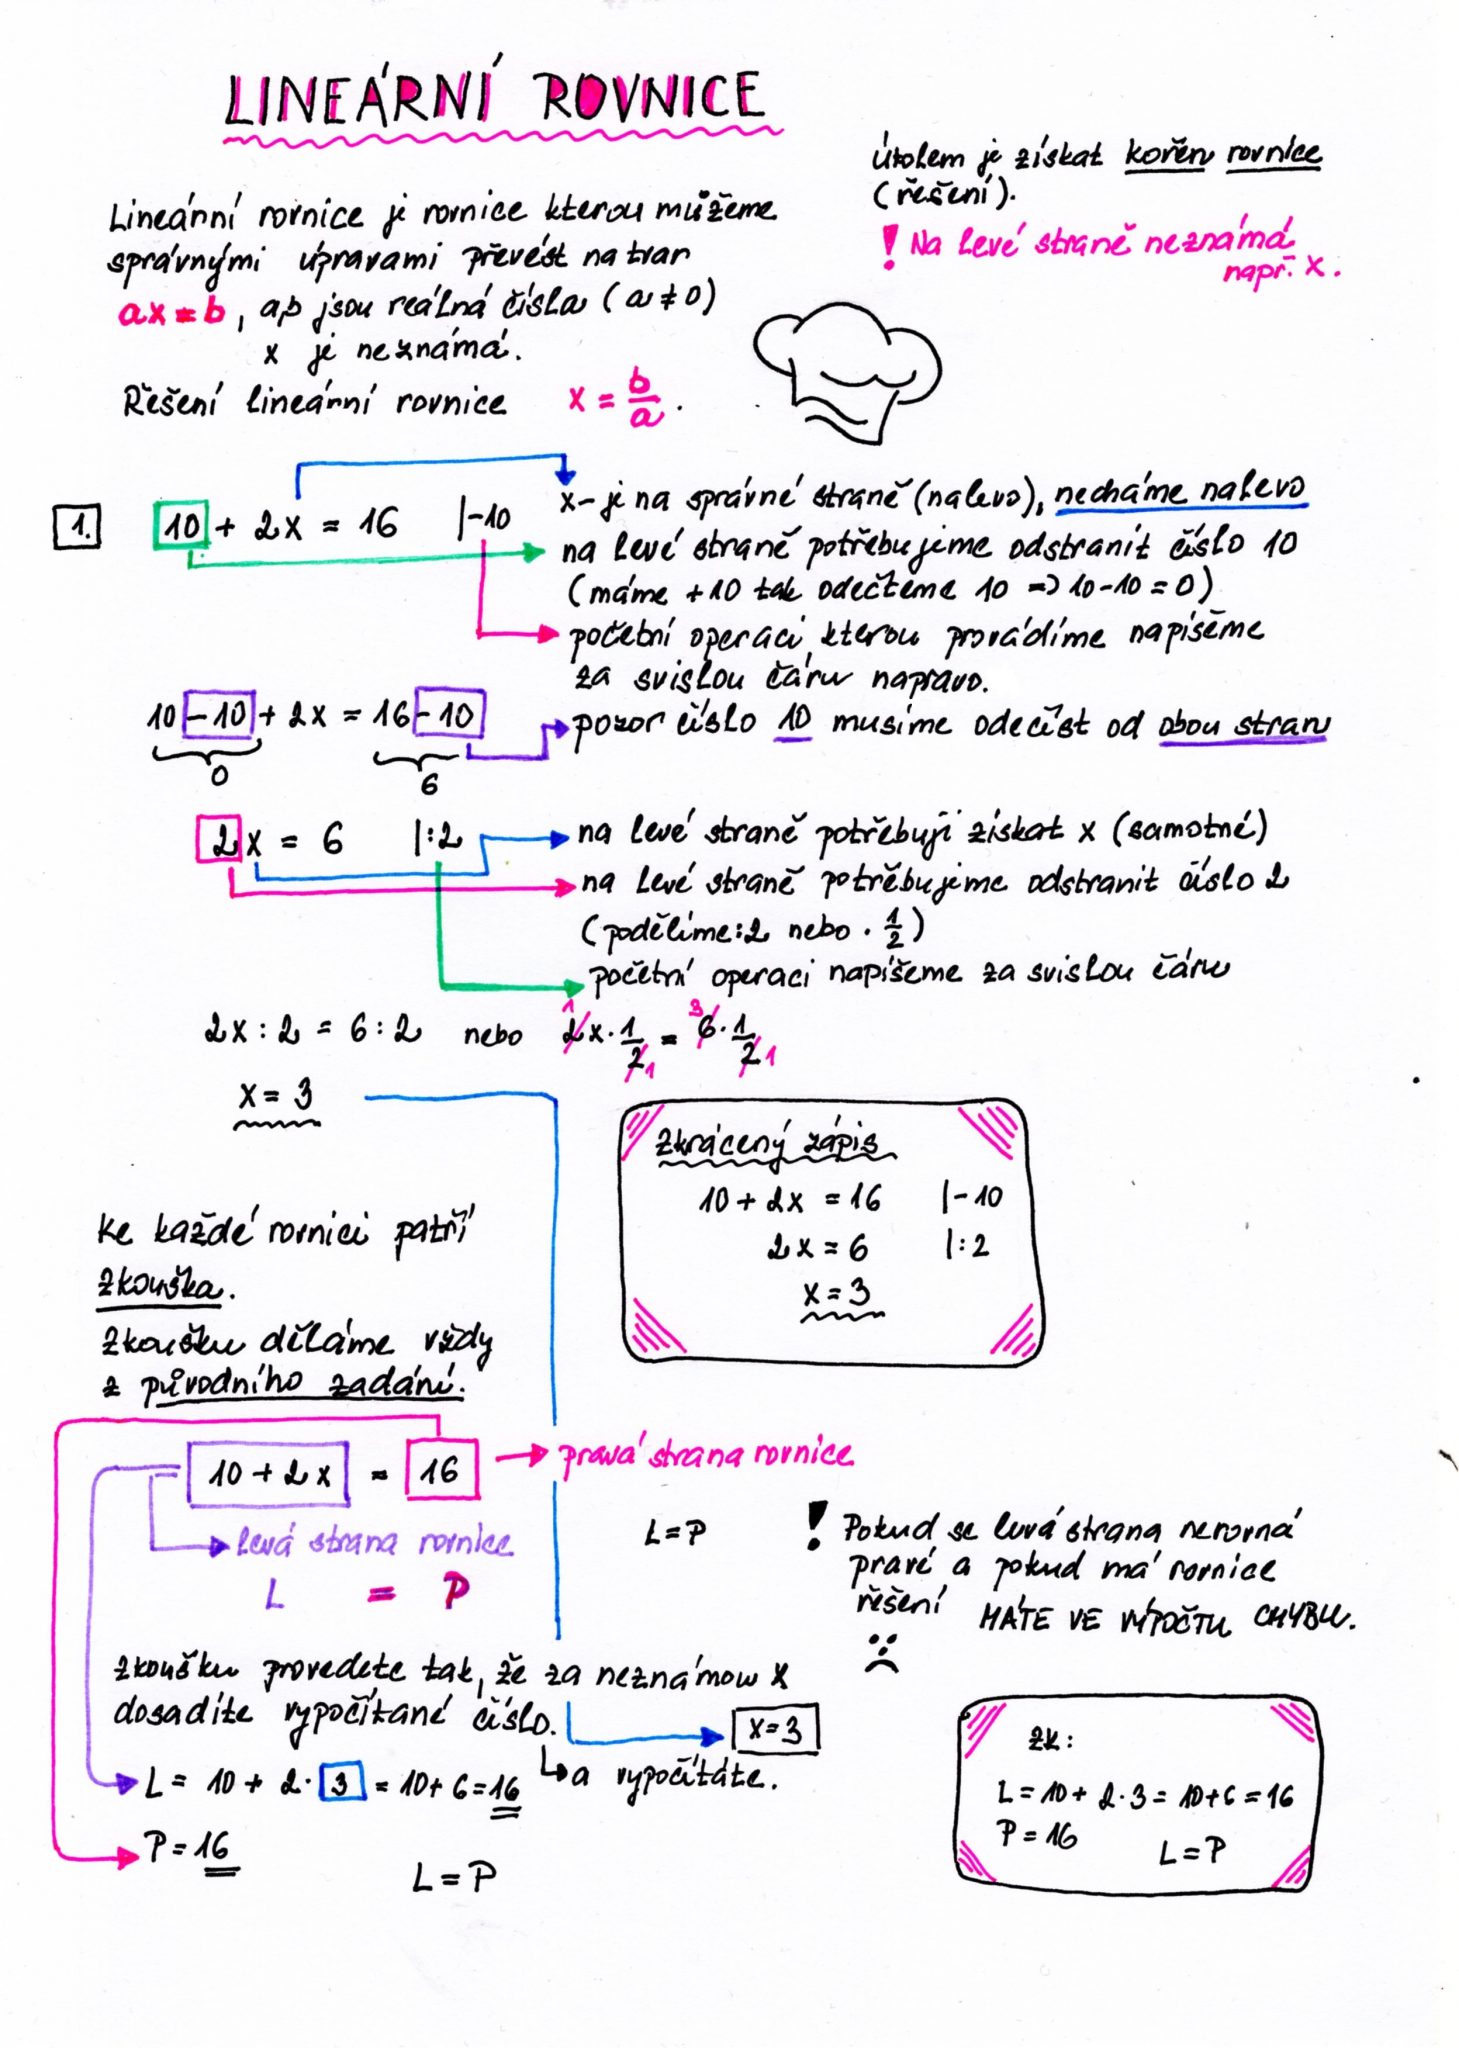 LINEÁRNÍ ROVNICE
Úkolem je získat kořen rovnice
(řešení).
! Na levé straně neznámá
např. x.
Lineární rovnice je rovnice kterou můžeme
správnými úpravami převést na tvar
ax = b, a,b jsou reálná čísla (a ≠ 0)
x je neznámá.
Řešení lineární rovnice x = b/a.
1. 10 + 2x = 16 |-10
x - je na správné straně (nalevo), necháme nalevo
na levé straně potřebujeme odstranit číslo 10
(máme +10 tak odečteme 10 => 10-10 = 0)
početní operaci, kterou provádíme napíšeme
za svislou čáru napravo.
10 - 10 + 2x = 16 - 10
0 6
pozor číslo 10 musíme odečíst od obou stran
2x = 6 |:2
na levé straně potřebuji získat x (samotné)
na levé straně potřebujeme odstranit číslo 2
(podělíme :2 nebo · 1/2)
početní operaci napíšeme za svislou čáru
2x : 2 = 6 : 2 nebo 1 2x · 1/2 1 = 3 6 · 1/2 1
x = 3
Zkrácený zápis
10 + 2x = 16 |-10
2x = 6 |:2
x = 3
Ke každé rovnici patří
zkouška.
Zkoušku děláme vždy
z původního zadání.
10 + 2x = 16
pravá strana rovnice
levá strana rovnice
L = P
L = P
! Pokud se levá strana nerovná
pravé a pokud má rovnice
řešení MÁTE VE VÝPOČTU CHYBU.
Zkoušku provedete tak, že za neznámou x
dosadíte vypočítané číslo.
x = 3
a vypočítáte.
L = 10 + 2 · 3 = 10 + 6 = 16
P = 16
L = P
ZK:
L = 10 + 2 · 3 = 10 + 6 = 16
P = 16
L = P